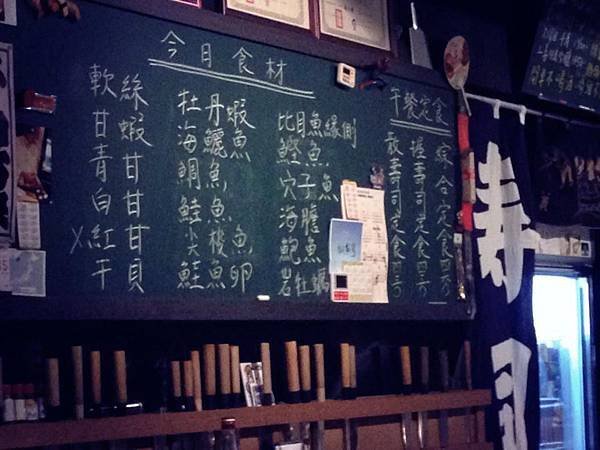 今日食材
軟絲
甘蝦
青甘
白甘
X紅甘
干貝
牡丹蝦
海鱺魚
鯛魚
鮭魚
尖梭魚
鮭魚卵
比目魚緣側
鰹魚
穴子魚
海膽
鮑魚
岩牡蠣
午餐定食
綜合定食
握壽司定食
散壽司定食
壽司